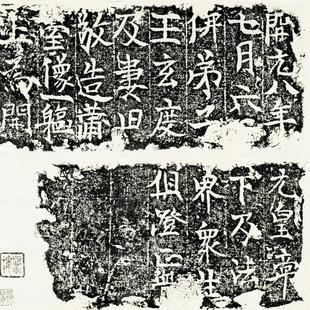 開元八年
七月六
佛弟子
王玄度
及妻田
敬造
像一軀
上為開
元皇帝
下及法
界衆生
俱登